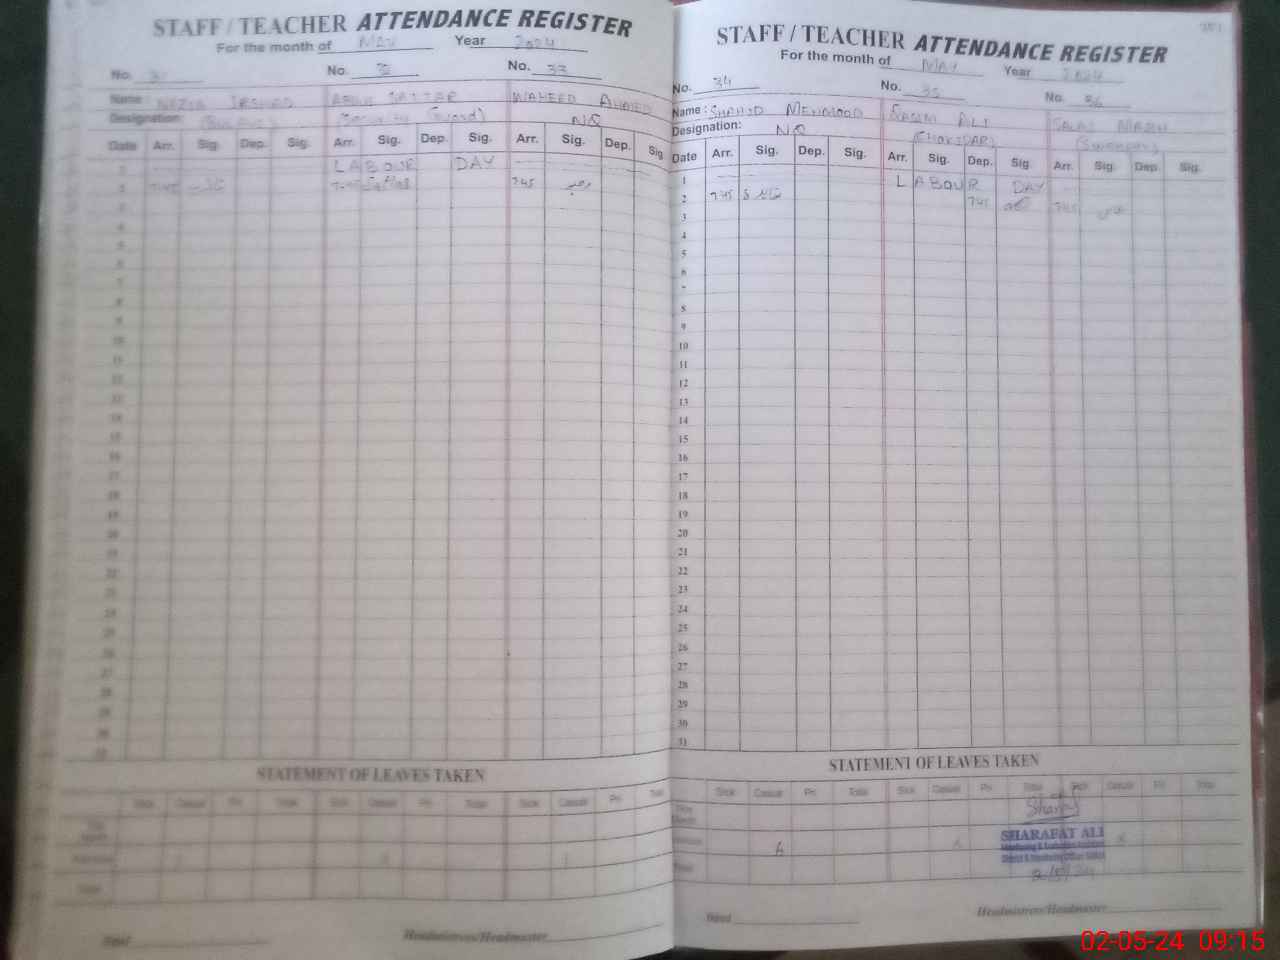 STAFF / TEACHER ATTENDANCE REGISTER
For the month of MAY Year 2024
No. 31 No. No. 33
Name: NAZIA IRSHAD ABDUL SATTAR WAHEED AHMED
Designation: (Security Guard) NQ
Date Arr. Sig. Dep. Sig. Arr. Sig. Dep. Sig. Arr. Sig. Dep. Sig
LABOUR DAY
2 7:45 7:45 7:45
3
4
5
6
7
8
9
10
11
12
13
14
15
16
17
18
19
20
21
22
23
24
25
26
27
28
29
30
31
STATEMENT OF LEAVES TAKEN
Sick Casual Pri Total Sick Casual Pri Total Sick Casual Pri Total
This Month
Total
Headmistress/Headmaster
STAFF / TEACHER ATTENDANCE REGISTER
For the month of MAY Year 2024
No. 34 No. 35 No. 36
Name: SHAHID MEHMOOD QASIM ALI
Designation: NQ (CHOKIDAR) (Sweeper)
Date Arr. Sig. Dep. Sig. Arr. Sig. Dep. Sig Arr. Sig. Dep Sig.
1 LABOUR DAY
2 7:45 7:45 7:45
3
4
5
6
7
8
9
10
11
12
13
14
15
16
17
18
19
20
21
22
23
24
25
26
27
28
29
30
31
STATEMENT OF LEAVES TAKEN
Sick Casual Pri Total Sick Casual Pri Total Sick Casual Pri Total
This Month
SHARAFAT ALI
Monitoring & Evaluation Assistant
2/5/24
Headmistress/Headmaster
02-05-24 09:15